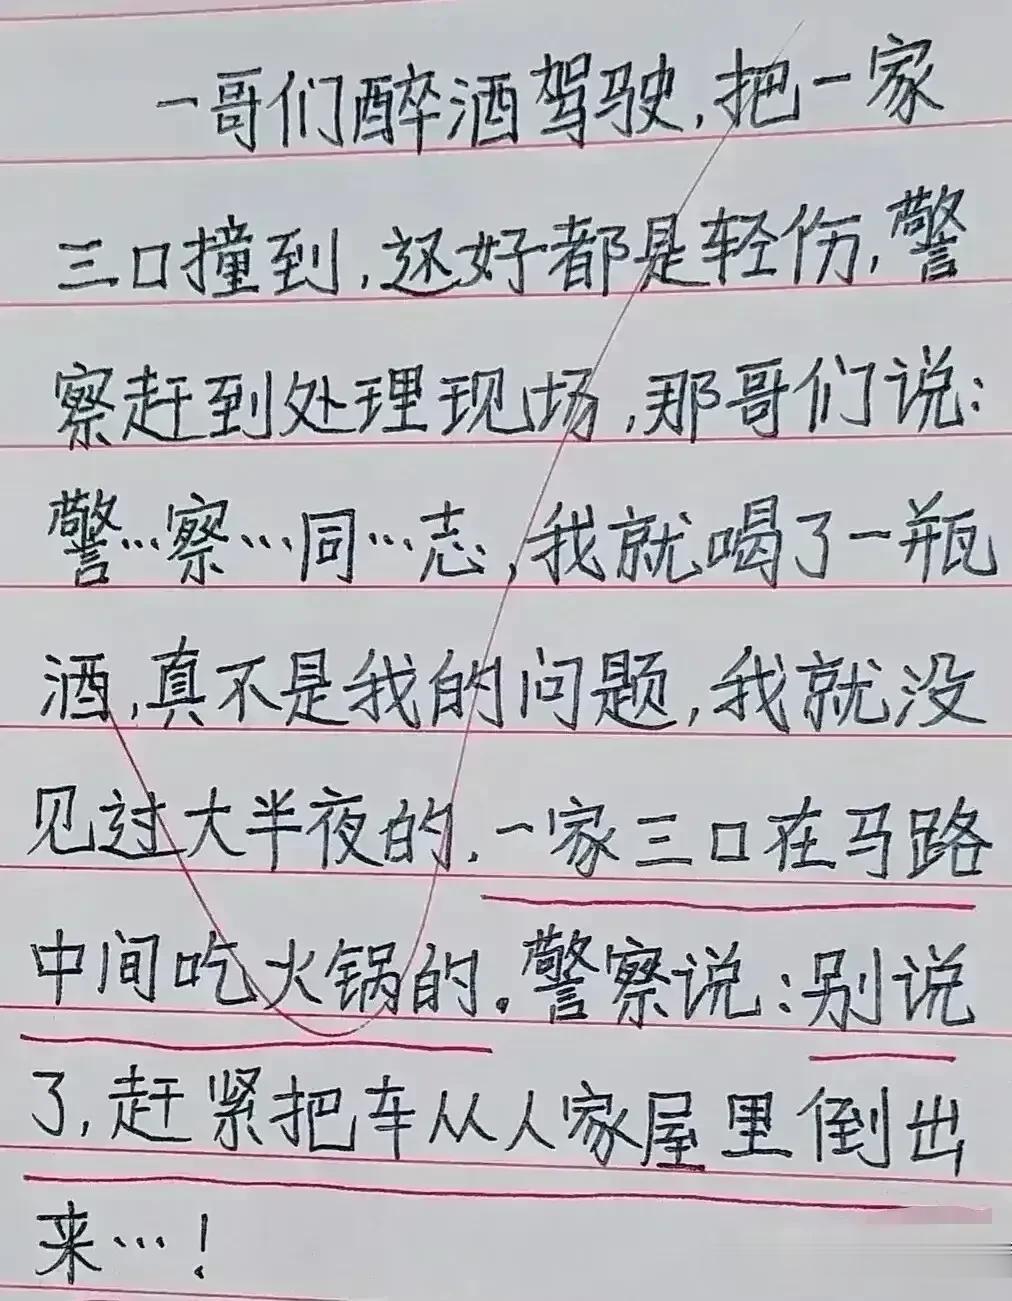 一哥们醉酒驾驶,把一家
三口撞到,还好都是轻伤,警
察赶到处理现场,那哥们说:
警…察…同…志,我就喝了一瓶
酒,真不是我的问题,我就没
见过大半夜的.一家三口在马路
中间吃火锅的。警察说:别说
了,赶紧把车从人家屋里倒出
来…!